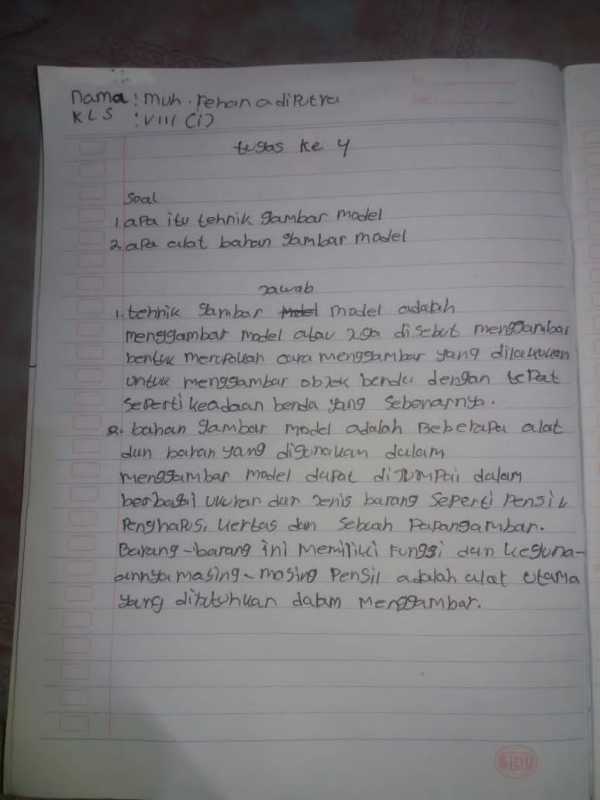 nama : muh. rehan adiputra
KLS : VIII (i)
tugas ke 4
Soal
1. apa itu tehnik gambar model
2. apa alat bahan gambar model
Jawab
1. tehnik gambar model model adalah
menggambar model atau Jga disebut menggambar
bentuk merupakan cara menggambar yang dilakukan
untuk menggambar objek benda dengan tepat
seperti keadaan benda yang sebenarnya.
2. bahan gambar model adalah Beberapa alat
dan bahan yang digunakan dalam
menggambar model dapat diJumpai dalam
berbagai ukuran dan Jenis barang seperti pensil
Penghapus, kertas dan sebuah Papangambar.
Barang-barang ini memiliki fungsi dan keguna-
annya masing-masing Pensil adalah alat utama
yang dibutuhkan dalam menggambar.
SIDU